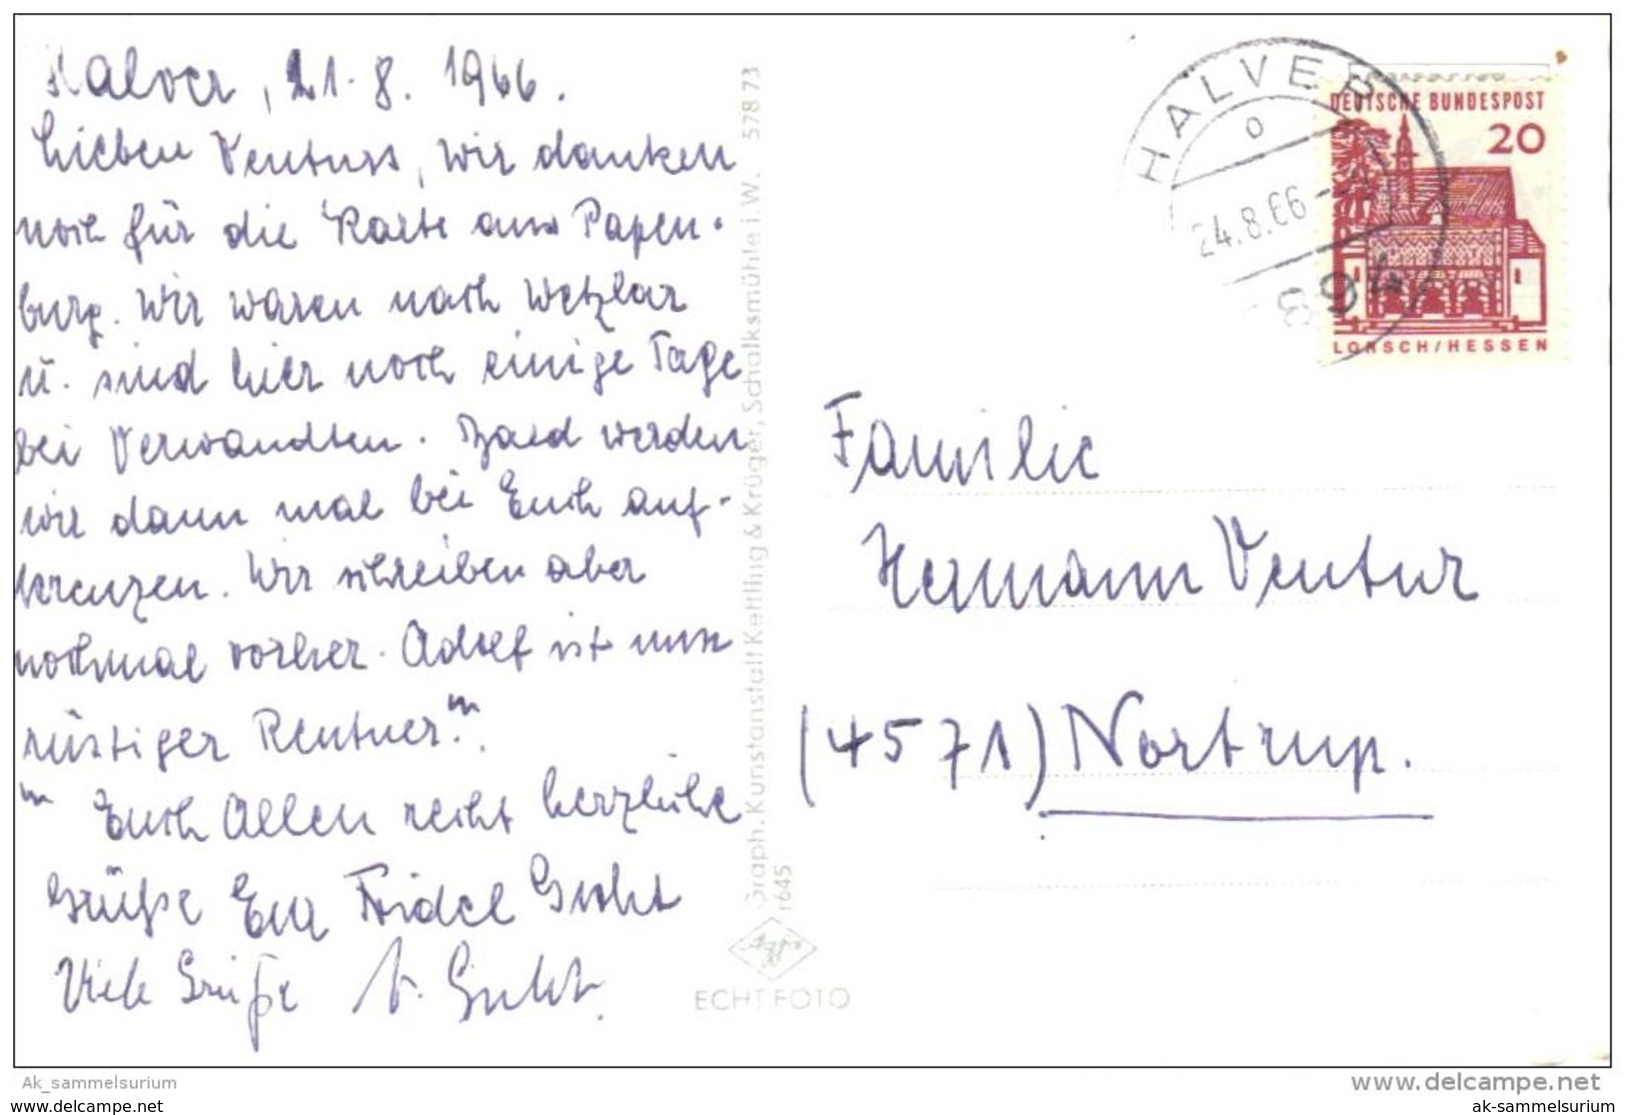 Halver, 21.8. 1966.
Lieben Venturs, wir danken
noch für die Karte aus Papen-
burg. Wir waren nach Wetzlar
u. sind hier noch einige Tage
bei Verwandten. Bald werden
wir dann mal bei Euch auf-
kreuzen. Wir schreiben aber
nochmal vorher. Adolf ist nun
rüstiger Rentner"".
"" Euch Allen recht herzliche
Grüße Eur Friedel
Viele Grüße A.
Graph. Kunstanstalt Kettling & Krüger, Schalksmühle i. W. 578 73
1645
Agfa
ECHT FOTO
HALVER
24.8.66
594
DEUTSCHE BUNDESPOST
20
LORSCH/HESSEN
Familie
Hermann Ventur
(4571) Nortrup.
Ak_sammelsurium
www.delcampe.net
www.player.com
ak-sammelsurium